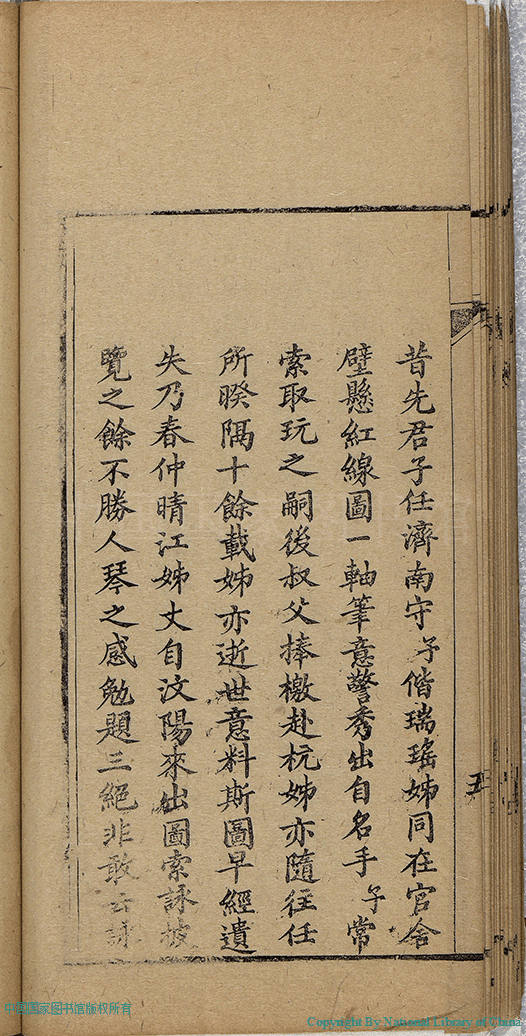 昔先君子任濟南守予偕瑞瑤姊同在官舍
壁懸紅線圖一軸筆意警秀出自名手予常
索取玩之嗣後叔父捧檄赴杭姊亦隨徃任
所暌隅十餘載姊亦逝世意料斯圖早經遺
失乃春仲晴江姊丈自汶陽來出圖索詠披
覽之餘不勝人琴之感勉題三絕非敢云詠
五
中国国家图书馆版权所有
Copyright By National Library of China